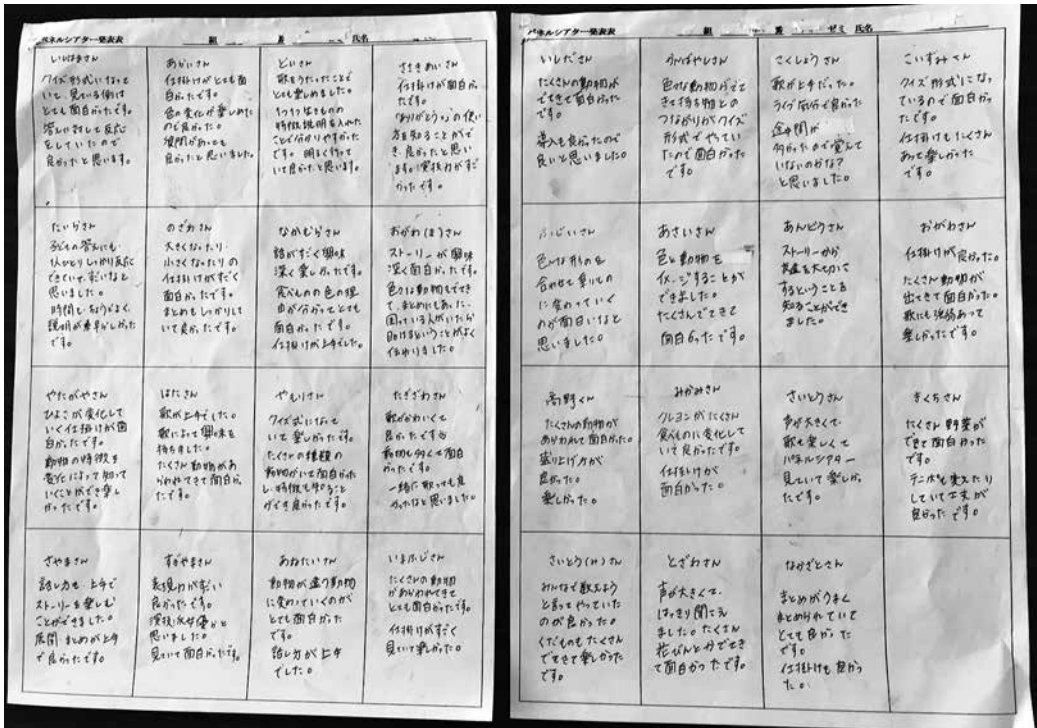 パネルシアター発表表 組 番 氏名
いしはまさん
クイズ形式になって
いて、見ている側は
とても面白かったです。
答えに対して反応
をしていたので
良かったと思います。
あかいさん
仕掛けがとても面
白かったです。
色の変化が楽しめた
ので良かった。
質問があっても
良かったと思いました。
どいさん
歌をうたったことで
とても楽しめました。
1つ1つたべものの
特徴説明を入れた
ことで分かりやすかった
です。明るく行って
いて良かったと思います。
ささきめいさん
仕掛けが面白か
ったです。
「ありがとう」の使い
方を知ることがで
き、良かったと思い
ます。演技力がすご
かったです。
たいらさん
子どもの答えにも
1人ひとりしっかり反応
できていて、すごいなと
思いました。
時間もちょうどよく、
説明が素早かった
です。
のざわさん
大きくなったり
小さくなったりの
仕掛けがすごく
面白かったです。
まとめもしっかりして
いて良かったです。
なかむらさん
話がすごく興味
深く楽しかったです。
食べものの色の理
由が分かってとても
面白かったです。
仕掛けが上手でした。
おがわ(ほ)さん
ストーリーが興味
深く面白かったです。
色々な動物もでてき
て、まとめにもあった、
困っている人がいたら
助けるということがよく
伝わりました。
やたがやさん
ひよこが変化して
いく仕掛けが面
白かったです。
動物の特徴を
変化によって知って
いくことができ楽し
かったです。
はたさん
歌が上手でした。
歌によって興味を
持ちました。
たくさん動物があ
らわれてきて面白か
ったです。
やもりさん
クイズ式になって
いて楽しかったです。
たくさんの種類の
動物がいて面白かった
し、特徴も知ること
ができ良かったです。
たきざわさん
歌がかわいくて
良かったです。
動物も多くて面白
かったです。
一緒に歌っても良
かったなと思いました。
さやまさん
話し方も上手で
ストーリーを楽しむ
ことができました。
展開・まとめが上手
で良かったです。
すがやまさん
表現力がすごい
良かったです。
演技が女優かと
思いました。
見ていて面白かったです。
あねたいさん
動物が違う動物
に変わっていくのが
とても面白かった
です。
話し方が上手
でした。
いまふじさん
たくさんの動物
があらわれてきて
とても面白かったです。
仕掛けがすごく
見ていて楽しかった。
パネルシアター発表表 組 番 ゼミ 氏名
いしださん
たくさんの動物が
でてきて面白かった
です。
導入も良かったので
良いと思いました。
色々な動物がでて
きて持ち物との
つながりがクイズ
形式でやってい
たので面白かった
です。
こくしょうさん
歌が上手だった。
ライブ気分で良かった
途中間が
多かったので覚えて
いないのかな?
と思いました。
こいずみさん
クイズ形式になっ
ているので面白かっ
たです。
仕掛けもたくさん
あって楽しかった
です。
ふじいさん
色々な形のを
合わせて違うもの
に変わっていく
のが面白いなと
思いました。
あさいさん
色で動物を
イメージすることが
できました。
たくさんでてきて
面白かったです。
あんどうさん
ストーリーから
友達を大切に
するということを
知ることができ
ました。
おがわさん
仕掛けが良かった。
たくさん動物が
出てきて面白かった。
歌にも強弱あって
楽しかったです。
高野くん
たくさんの動物が
あらわれて面白かった。
盛り上げ方が
良かった。
楽しかった。
みかみさん
クレヨンがたくさん
食べものに変化して
いて良かったです。
仕掛けが
面白かった。
さいとうさん
声が大きくて、
歌も楽しくて
パネルシアター
見ていて楽しか
ったです。
きくちさん
たくさん野菜が
でてきて面白かった
です。
テンポも変えたり
していて工夫が
良かったです。
さいとう(み)さん
みんなで歌えよう
と言ってやっていた
のが良かった。
くだものもたくさん
でてきて楽しかった
です。
とざわさん
声が大きくて、
はっきり聞こえ
ました。たくさん
花びんとかでてき
て面白かったです。
なかざとさん
まとめがうまく
まとめられていて
とても良かった
です。
仕掛けも良かっ
た。